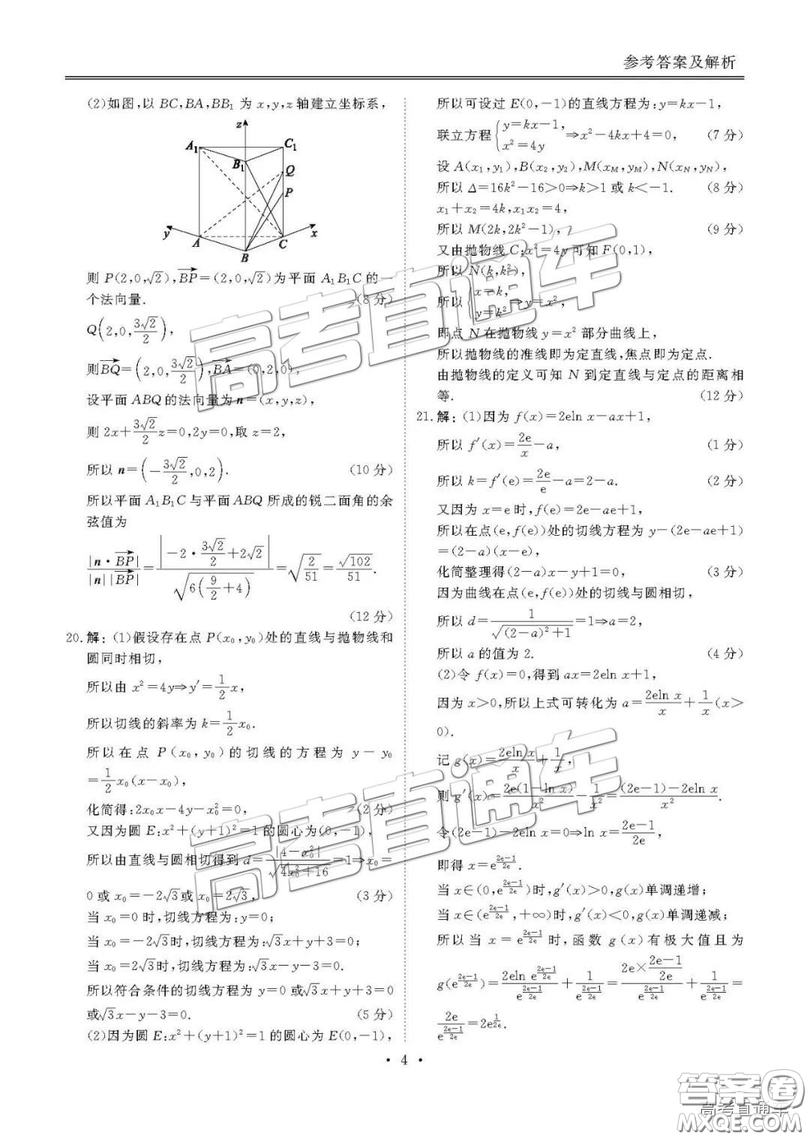 参考答案及解析
(2)如图,以 BC,BA,BB₁ 为 x,y,z 轴建立坐标系,
z
A₁
C₁
B₁
Q
P
y
A
B
C
x
则 P(2,0,√2),BP→=(2,0,√2)为平面 A₁B₁C 的一
个法向量. (8 分)
Q(2,0,3√2/2),
则BQ→=(2,0,3√2/2),BA→=(0,2,0),
设平面 ABQ 的法向量为 n=(x,y,z),
则 2x+3√2/2 z=0,2y=0,取 z=2,
所以 n=(-3√2/2,0,2). (10 分)
所以平面 A₁B₁C 与平面 ABQ 所成的锐二面角的余
弦值为
|n·BP→|/|n||BP→|=|-2·3√2/2+2√2|/√(6(9/2+4))=√(2/51)=√102/51.
(12 分)
20.解:(1)假设存在点 P(x₀,y₀)处的直线与抛物线和
圆同时相切,
所以由 x²=4y⇒y′=1/2 x,
所以切线的斜率为 k=1/2 x₀.
所以在点 P(x₀,y₀)的切线的方程为 y-y₀
=1/2 x₀(x-x₀),
化简得:2x₀x-4y-x₀²=0, (2 分)
又因为圆 E:x²+(y+1)²=1 的圆心为(0,-1),
所以由直线与圆相切得到 d=|4-x₀²|/√(4x₀²+16)=1⇒x₀=
0 或 x₀=-2√3或 x₀=2√3, (3 分)
当 x₀=0 时,切线方程为:y=0;
当 x₀=-2√3时,切线方程为:√3x+y+3=0;
当 x₀=2√3时,切线方程为:√3x-y-3=0.
所以符合条件的切线方程为 y=0 或√3x+y+3=0
或√3x-y-3=0. (5 分)
(2)因为圆 E:x²+(y+1)²=1 的圆心为 E(0,-1),
所以可设过 E(0,-1)的直线方程为:y=kx-1,
联立方程{y=kx-1, x²=4y ⇒x²-4kx+4=0, (7 分)
设 A(x₁,y₁),B(x₂,y₂),M(x_M,y_M),N(x_N,y_N),
所以 Δ=16k²-16>0⇒k>1 或 k<-1. (8 分)
x₁+x₂=4k,x₁x₂=4,
所以 M(2k,2k²-1), (9 分)
又由抛物线 C:x²=4y 可知 F(0,1),
所以 N(k,k²),
所以{x=k, y=k² ⇒y=x²,
即点 N 在抛物线 y=x² 部分曲线上,
所以抛物线的准线即为定直线,焦点即为定点.
由抛物线的定义可知 N 到定直线与定点的距离相
等. (12 分)
21.解:(1)因为 f(x)=2eln x-ax+1,
所以 f′(x)=2e/x-a, (1 分)
所以 k=f′(e)=2e/e-a=2-a. (2 分)
又因为 x=e 时,f(e)=2e-ae+1,
所以在点(e,f(e))处的切线方程为 y-(2e-ae+1)
=(2-a)(x-e),
化简整理得(2-a)x-y+1=0, (3 分)
因为曲线在点(e,f(e))处的切线与圆相切,
所以 d=1/√((2-a)²+1)=1⇒a=2,
所以 a 的值为 2. (4 分)
(2)令 f(x)=0,得到 ax=2eln x+1,
因为 x>0,所以上式可转化为 a=2eln x/x+1/x(x>
0).
记 g(x)=2eln x/x+1/x,
则 g′(x)=2e(1-ln x)/x²-1/x²=((2e-1)-2eln x)/x².
令(2e-1)-2eln x=0⇒ln x=(2e-1)/2e,
即得 x=e^((2e-1)/2e).
当 x∈(0,e^((2e-1)/2e))时,g′(x)>0,g(x)单调递增;
当 x∈(e^((2e-1)/2e),+∞)时,g′(x)<0,g(x)单调递减;
所以当 x=e^((2e-1)/2e)时,函数 g(x)有极大值且为
g(e^((2e-1)/2e))=2eln e^((2e-1)/2e)/e^((2e-1)/2e)+1/e^((2e-1)/2e)=(2e×(2e-1)/2e)/e^((2e-1)/2e)+1/e^((2e-1)/2e)=
2e/e^((2e-1)/2e)=2e^(1/2e).
· 4 ·
高考直通车
高考直通车
答案圈
高考直通车
MXQE.COM